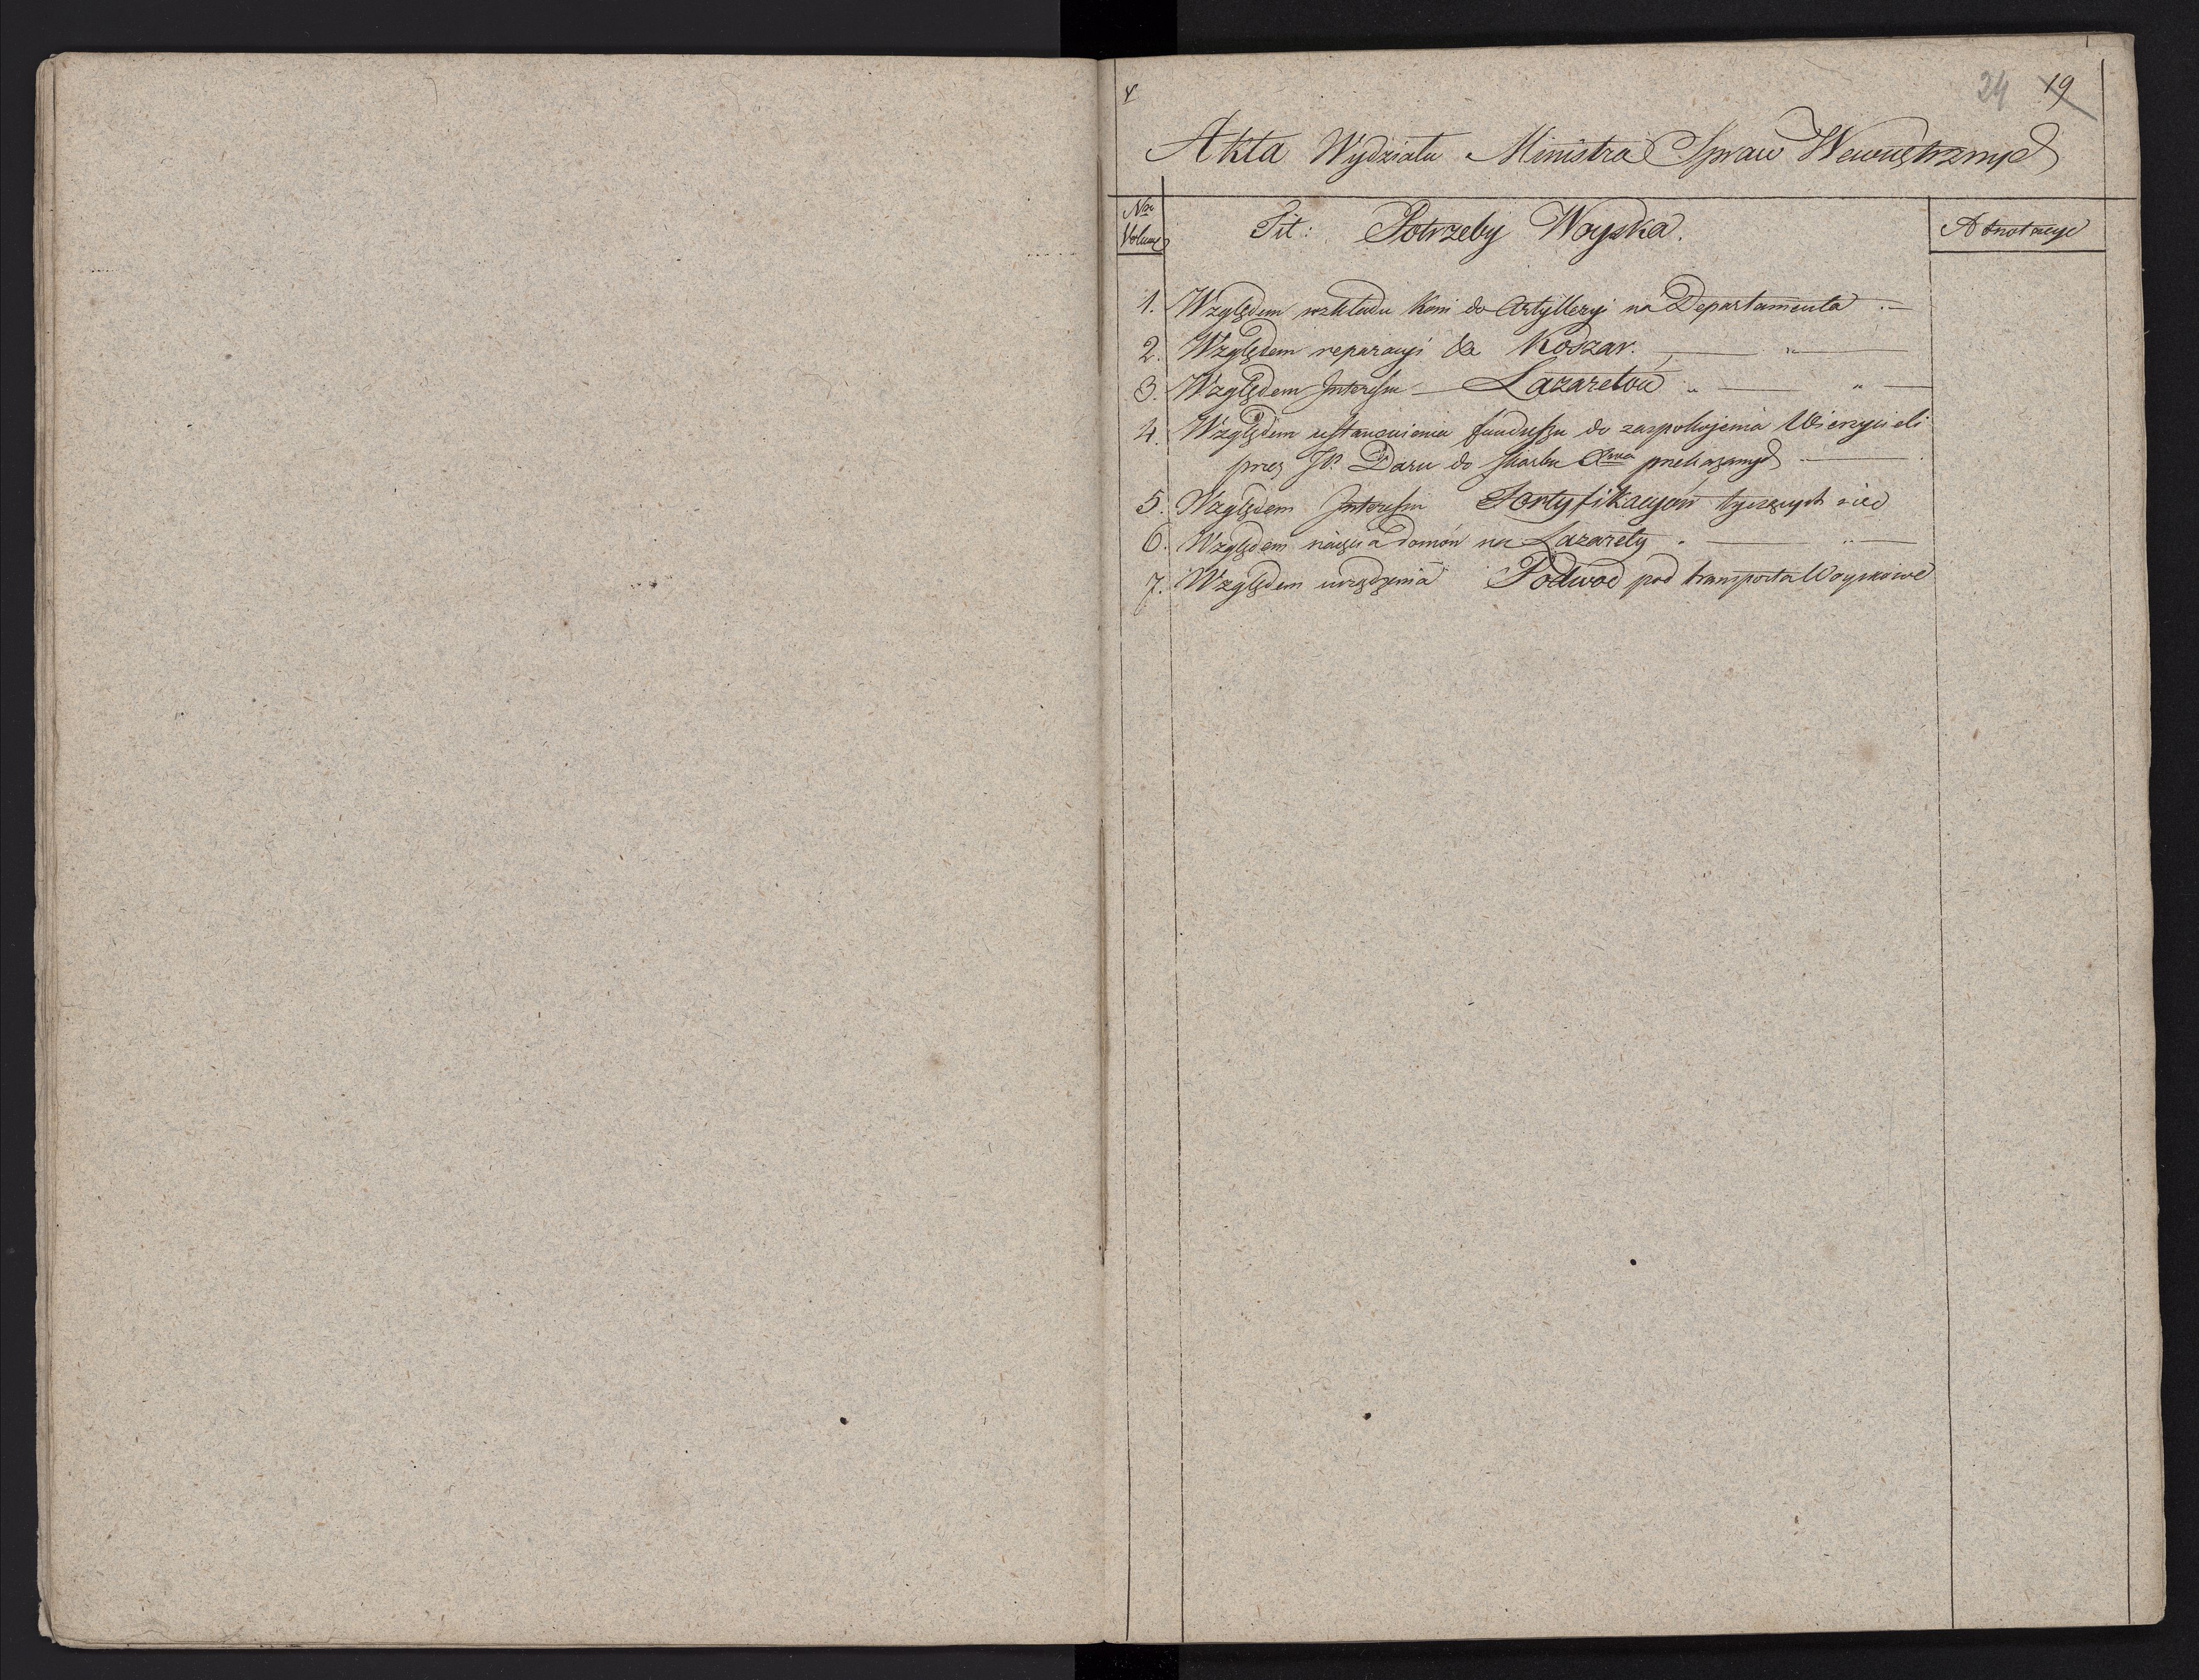 24 19
Akta Wydziału Ministra Spraw Wewnętrznych
Nro Volum
Tit: Potrzeby Woyska.
Adnotacye
1. Względem rozkładu Koni do Artylleryi na Departamenta. —
2. Względem reparacyi Koszar. — " —
3. Względem Interessu — Lazaretów " — " —
4. Względem ustanowienia funduszu do zaspokojenia Wierzycieli
przez JP. Daru do skarbu przekazanych —
5. Względem Interessu Fortyfikacyów tyczących sie
6. Względem naięcia domów na Lazarety. — " —
7. Względem urządzenia Podwod pod transporta Woyskowe